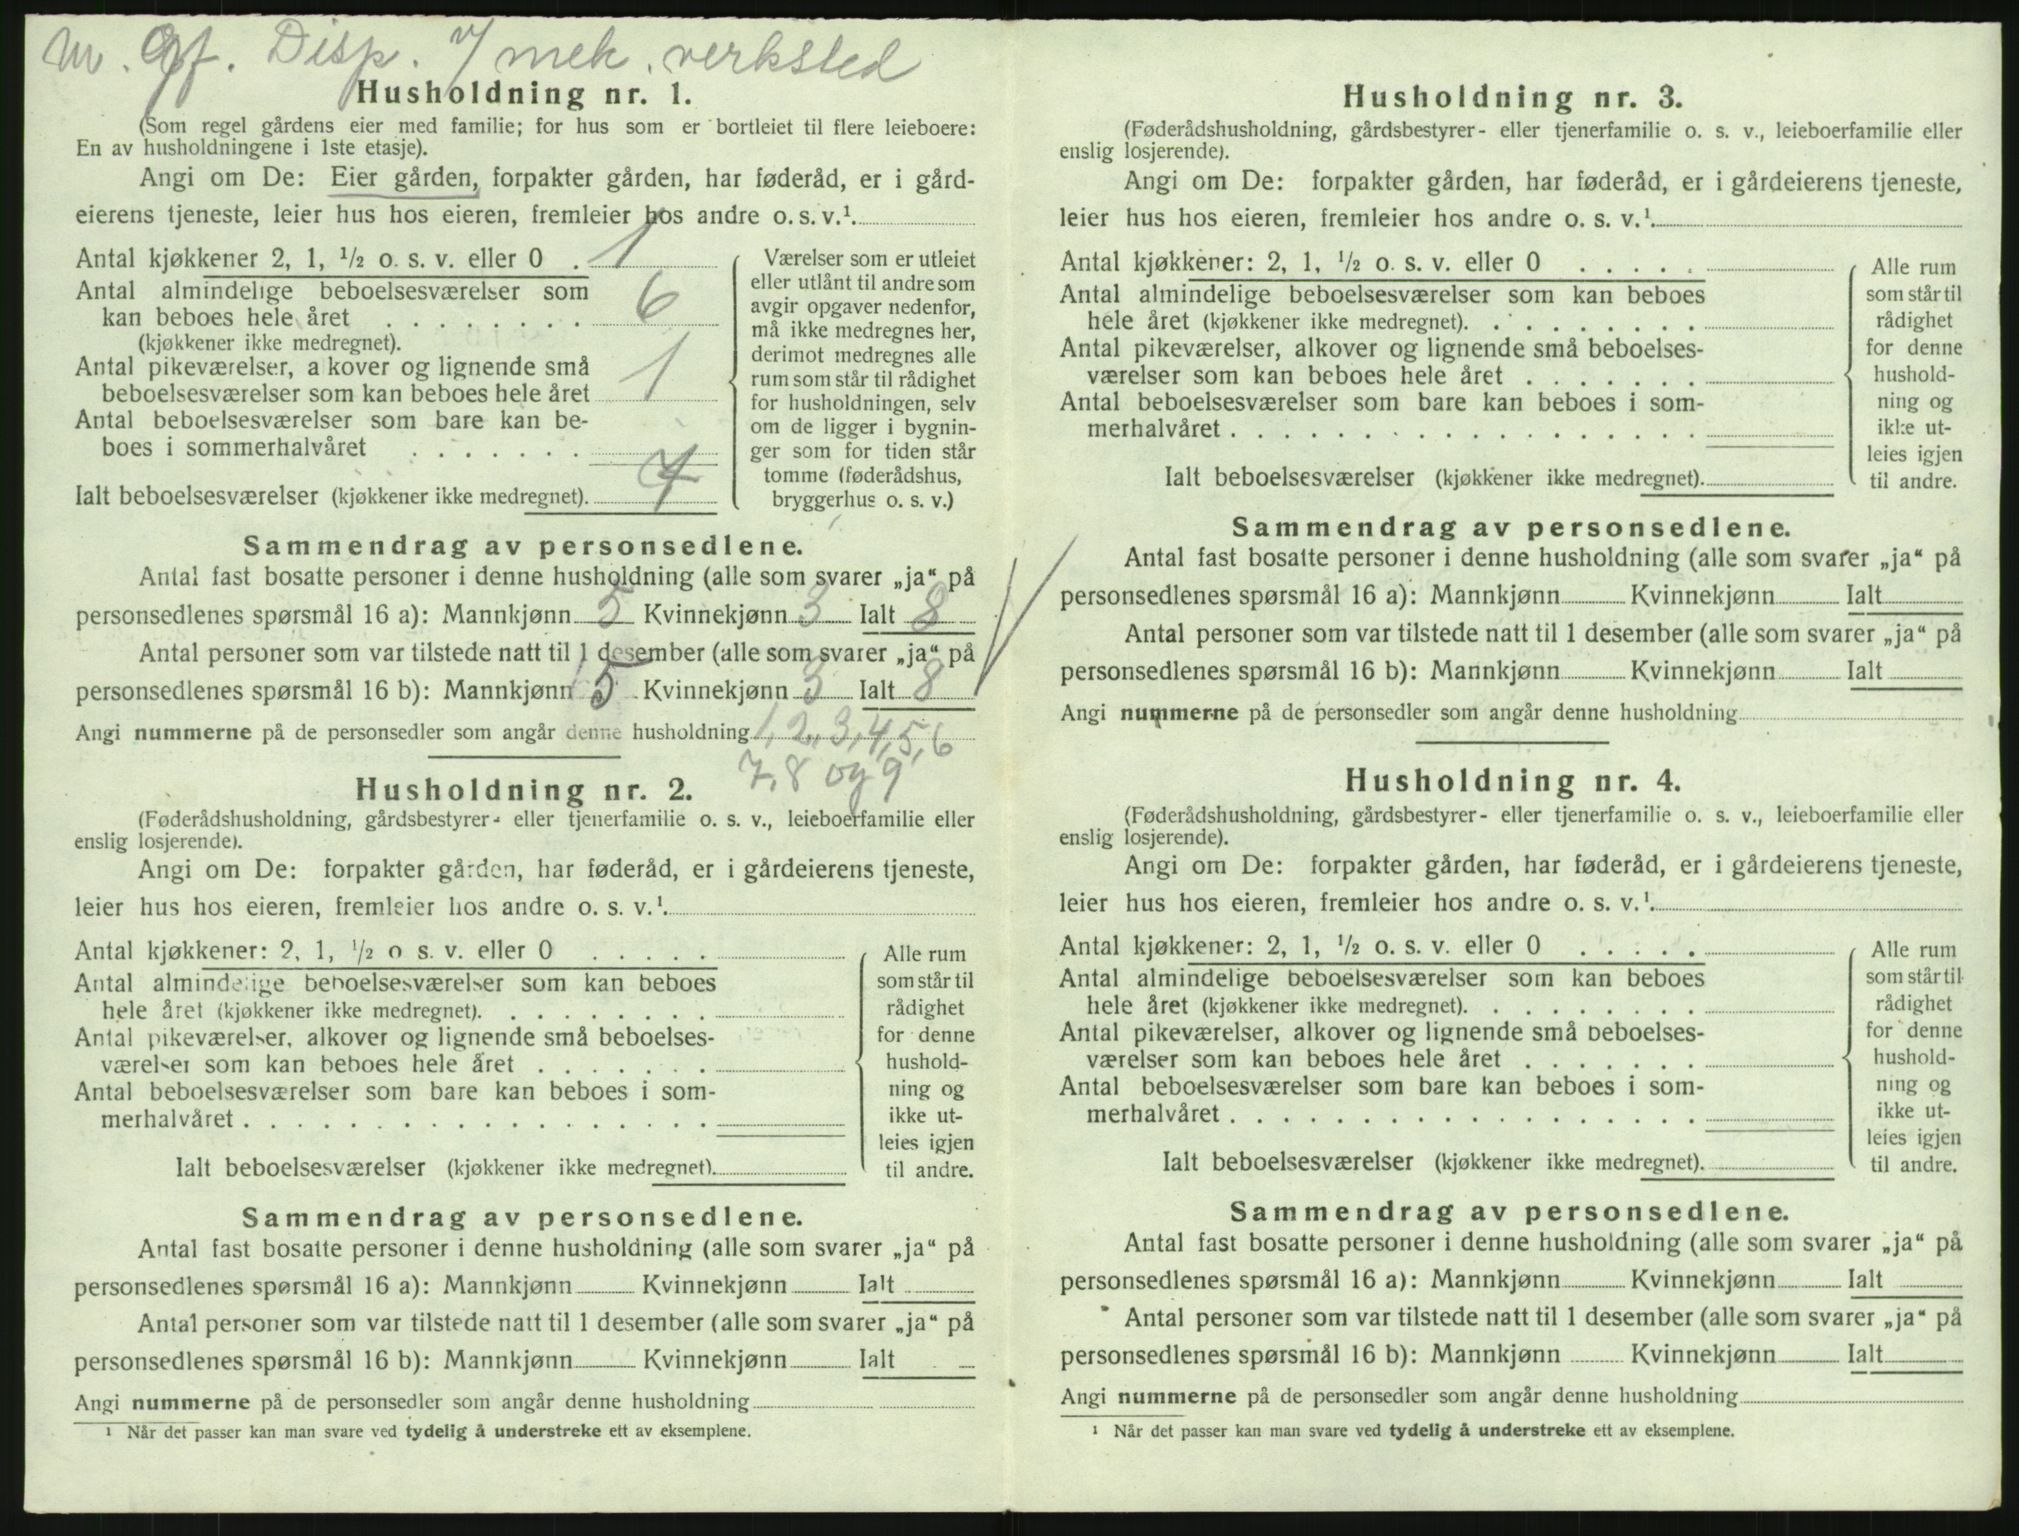 m. gf. Disp. v/ mek. verksted
Husholdning nr. 1.
(Som regel gårdens eier med familie; for hus som er bortleiet til flere leieboere:
En av husholdningene i 1ste etasje).
Angi om De: Eier gården, forpakter gården, har føderåd, er i gård-
eierens tjeneste, leier hus hos eieren, fremleier hos andre o. s. v.¹.
Antal kjøkkener 2, 1, ½ o. s. v. eller 0 . 1
Antal almindelige beboelsesværelser som
kan beboes hele året . . . . . . . . 6
(kjøkkener ikke medregnet).
Antal pikeværelser, a kover og lignende små
beboelsesværelser som kan beboes hele året 1
Antal beboelsesværelser som bare kan be-
boes i sommerhalvåret . . . . . . .
Ialt beboelsesværelser (kjøkkener ikke medregnet). 7
Værelser som er utleiet
eller utlånt til andre som
avgir opgaver nedenfor,
må ikke medregnes her,
derimot medregnes alle
rum som står til rådighet
for husholdningen, selv
om de ligger i bygnin-
ger som for tiden står
tomme (føderådshus,
bryggerhus o. s. v.)
Sammendrag av personsedlene.
Antal fast bosatte personer i denne husholdning (alle som svarer „ja“ på
personsedlenes spørsmål 16 a): Mannkjønn 5 Kvinnekjønn 3 Ialt 8
Antal personer som var tilstede natt til 1 desember (alle som svarer „ja“ på
personsedlenes spørsmål 16 b): Mannkjønn 5 Kvinnekjønn 3 Ialt 8
Angi nummerne på de personsedler som angår denne husholdning 1, 2, 3, 4, 5, 6
7, 8 og 9
Husholdning nr. 2.
(Føderådshusholdning, gårdsbestyrer- eller tjenerfamilie o. s. v., leieboerfamilie eller
enslig losjerende).
Angi om De: forpakter gården, har føderåd, er i gårdeierens tjeneste,
leier hus hos eieren, fremleier hos andre o. s. v.¹.
Antal kjøkkener: 2, 1, ½ o s. v. eller 0 . . . . .
Antal almindelige beboelsesværelser som kan beboes
hele året (kjøkkener ikke medregnet). . . . . . . . .
Antal pikeværelser, alkover og lignende små beboelses-
værelser som kan beboes hele året . . . . . . .
Antal beboelsesværelser som bare kan beboes i som-
merhalvåret . . . . . . . . . . . . . . . . . .
Ialt beboelsesværelser (kjøkkener ikke medregnet).
Alle rum
som står til
rådighet
for denne
hushold-
ning og
ikke ut-
leies igjen
til andre.
Sammendrag av personsedlene.
Antal fast bosatte personer i denne husholdning (alle som svarer „ja“ på
personsedlenes spørsmål 16 a): Mannkjønn Kvinnekjønn Ialt
Antal personer som var tilstede natt til 1 desember (alle som svarer „ja“ på
personsedlenes spørsmål 16 b): Mannkjønn Kvinnekjønn Ialt
Angi nummerne på de personsedler som angår denne husholdning
¹ Når det passer kan man svare ved tydelig å understreke ett av eksemplene.
Husholdning nr. 3.
(Føderådshusholdning, gårdsbestyrer- eller tjenerfamilie o. s. v., leieboerfamilie eller
enslig losjerende).
Angi om De: forpakter gården, har føderåd, er i gårdeierens tjeneste,
leier hus hos eieren, fremleier hos andre o. s. v.¹.
Antal kjøkkener: 2, 1, ½ o. s. v. eller 0 . . . . .
Antal almindelige beboelsesværelser som kan beboes
hele året (kjøkkener ikke medregnet). . . . . . . . .
Antal pikeværelser, alkover og lignende små beboelses-
værelser som kan beboes hele året . . . . . . .
Antal beboelsesværelser som bare kan beboes i som-
merhalvåret . . . . . . . . . . . . . . . . . .
Ialt beboelsesværelser (kjøkkener ikke medregnet).
Alle rum
som står til
rådighet
for denne
hushold-
ning og
ikke ut-
leies igjen
til andre.
Sammendrag av personsedlene.
Antal fast bosatte personer i denne husholdning (alle som svarer „ja“ på
personsedlenes spørsmål 16 a): Mannkjønn Kvinnekjønn Ialt
Antal personer som var tilstede natt til 1 desember (alle som svarer „ja“ på
personsedlenes spørsmål 16 b): Mannkjønn Kvinnekjønn Ialt
Angi nummerne på de personsedler som angår denne husholdning
Husholdning nr. 4.
(Føderådshusholdning, gårdsbestyrer- eller tjenerfamilie o. s. v., leieboerfamilie eller
enslig losjerende).
Angi om De: forpakter gården, har føderåd, er i gårdeierens tjeneste,
leier hus hos eieren, fremleier hos andre o. s. v.¹.
Antal kjøkkener: 2, 1, ½ o. s. v. eller 0 . . . . .
Antal almindelige beboelsesværelser som kan beboes
hele året (kjøkkener ikke medregnet). . . . . . . . .
Antal pikeværelser, alkover og lignende små beboelses-
værelser som kan beboes hele året . . . . . . .
Antal beboelsesværelser som bare kan beboes i som-
merhalvåret . . . . . . . . . . . . . . . . . .
Ialt beboelsesværelser (kjøkkener ikke medregnet).
Alle rum
som står til
rådighet
for denne
hushold-
ning og
ikke ut-
leies igjen
til andre.
Sammendrag av personsedlene.
Antal fast bosatte personer i denne husholdning (alle som svarer „ja“ på
personsedlenes spørsmål 16 a): Mannkjønn Kvinnekjønn Ialt
Antal personer som var tilstede natt til 1 desember (alle som svarer „ja“ på
personsedlenes spørsmål 16 b): Mannkjønn Kvinnekjønn Ialt
Angi nummerne på de personsedler som angår denne husholdning
¹ Når det passer kan man svare ved tydelig å understreke ett av eksemplene.